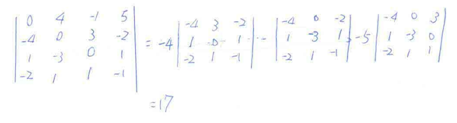 | 0 4 -1 5 |
| -4 0 3 -2 |
| 1 -3 0 1 |
| -2 1 1 -1 | = -4 | -4 3 -2 | 1 0 1 | -2 1 -1 | - | -4 0 -2 | 1 -3 1 | -2 1 -1 | -5 | -4 0 3 | 1 -3 0 | -2 1 1 |
=17